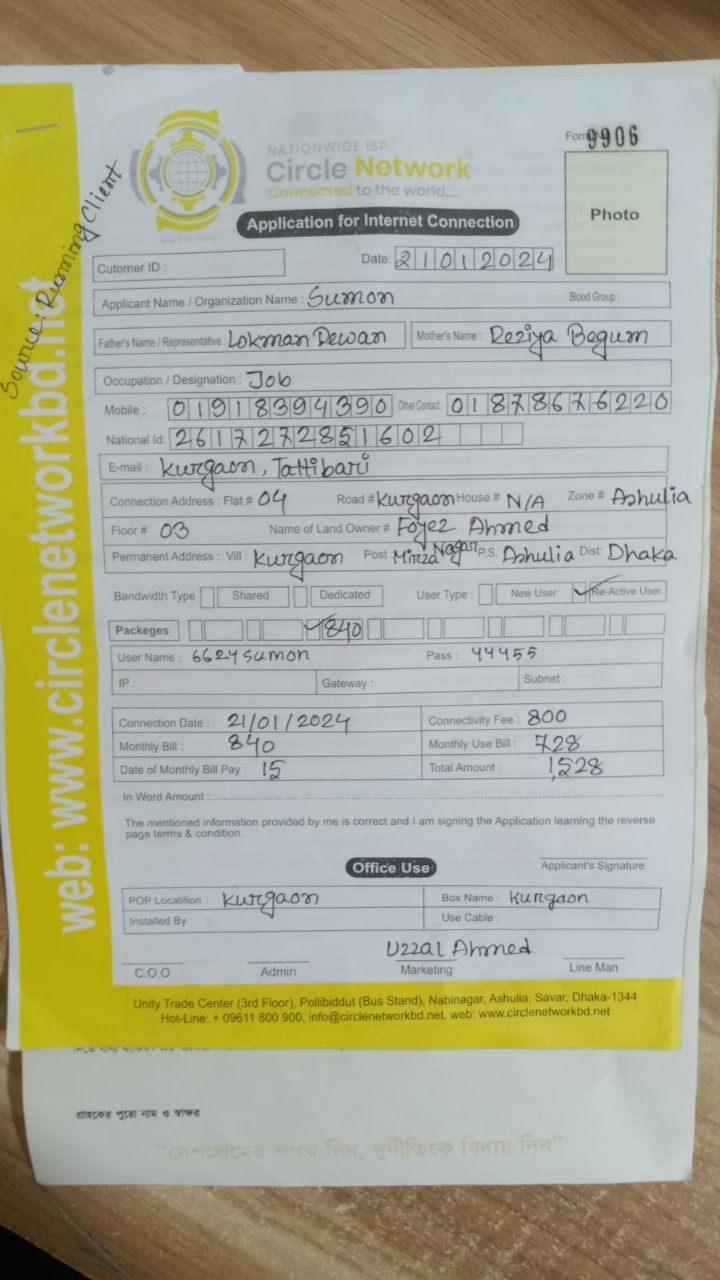 Form 9906
NATIONWIDE ISP
Circle Network
Connected to the world...
Photo
Application for Internet Connection
Source: Running Client
web: www.circlenetworkbd.net
Cutomer ID :
Date: 21012024
Applicant Name / Organization Name : Sumon Blood Group :
Father's Name / Representative : Lokman Dewan Mother's Name : Reziya Begum
Occupation / Designation : Job
Mobile : 01918394390 Other Contact : 01878676220
National Id: 2617272851602
E-mail : Kurgaon, Tattibari
Connection Address : Flat # 04 Road # Kurgaon House # N/A Zone # Ashulia
Floor # 03 Name of Land Owner # Foyez Ahmed
Permanent Address : Vill : Kurgaon Post Mirza Nagar P.S. Ashulia Dist: Dhaka
Bandwidth Type Shared Dedicated User Type : New User ✓ Re-Active User
Packeges ✓ 840
User Name : 6624sumon Pass : 44455
IP : Gateway : Subnet :
Connection Date : 21/01/2024 Connectivity Fee : 800
Monthly Bill : 840 Monthly Use Bill : 728
Date of Monthly Bill Pay : 15 Total Amount : 1,528
In Word Amount :
The mentioned information provided by me is correct and I am signing the Application learning the reverse
page terms & condition.
Applicant's Signature
Office Use
POP Locatition : Kurgaon Box Name : Kurgaon
Installed By : Use Cable :
Uzzal Ahmed
C.O.O Admin Marketing Line Man
Unity Trade Center (3rd Floor), Pollibiddut (Bus Stand), Nabinagar, Ashulia, Savar, Dhaka-1344
Hot-Line: + 09611 800 900, info@circlenetworkbd.net, web: www.circlenetworkbd.net
গ্রাহকের পুরো নাম ও স্বাক্ষর
"দেশপ্রেমের শপথ নিন, দুর্নীতিকে বিদায় দিন"